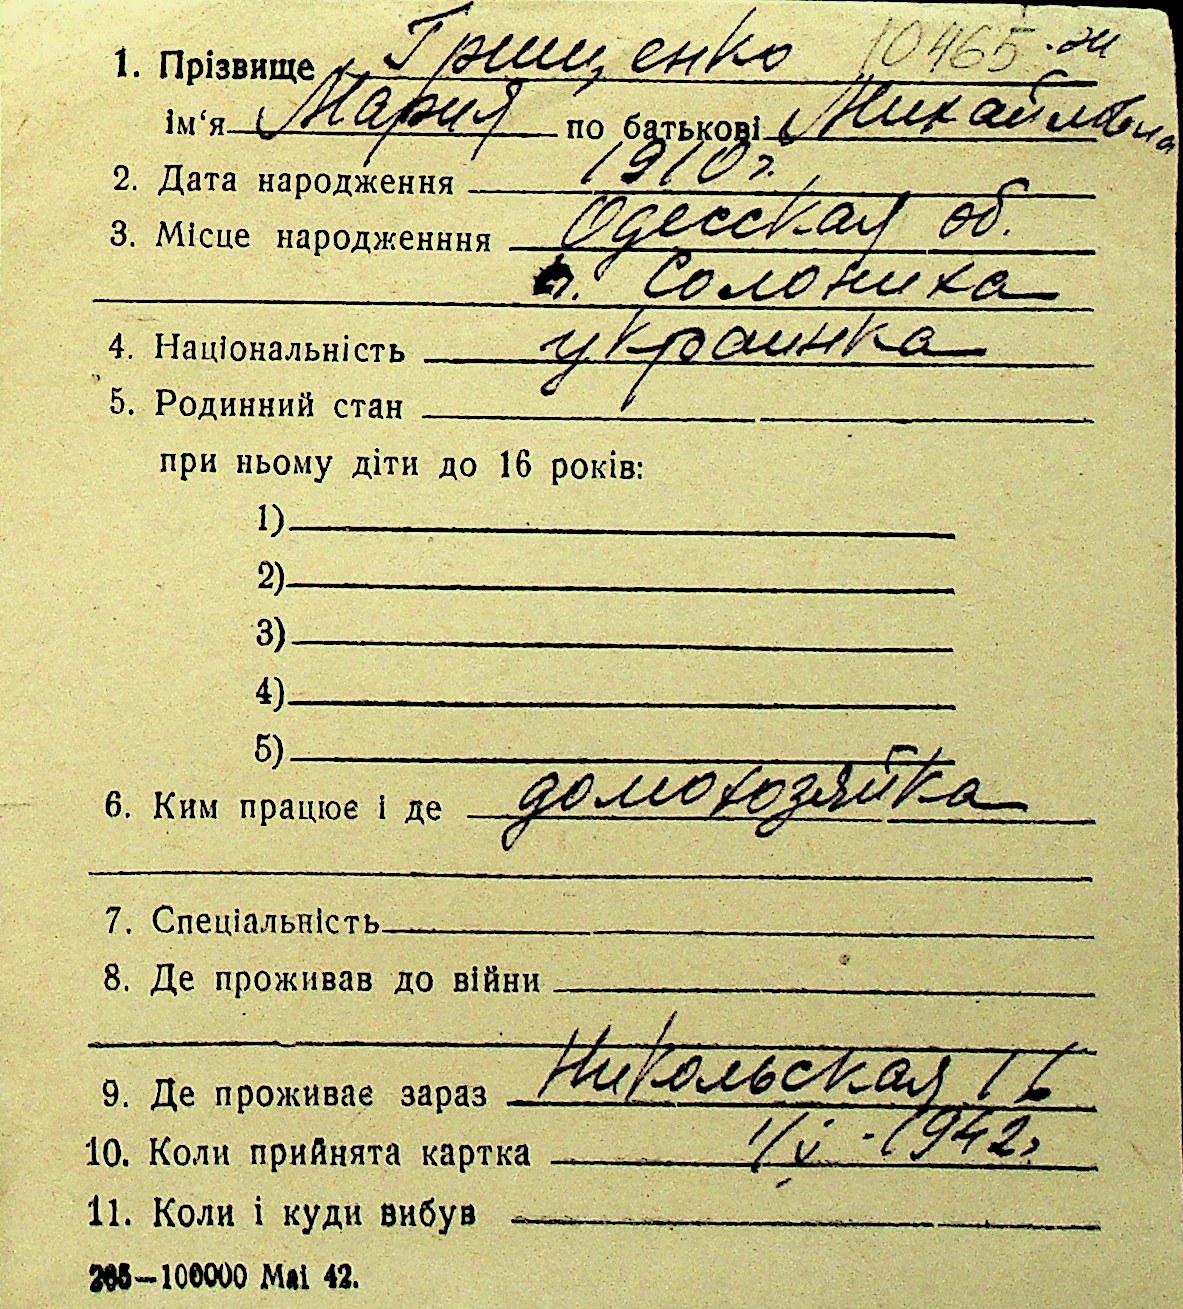 1. Прізвище Грищенко 10465
ім‘я Мария по батькові Михайловна
2. Дата народження 1910 г.
3. Місце народженння Одесская об.
с. Солониха
4. Національність украинка
5. Родинний стан
при ньому діти до 16 років:
1)
2)
3)
4)
5)
6. Ким працює і де домохозяйка
7. Спеціальність
8. Де проживав до війни
9. Де проживає зараз Никольская 16
10. Коли прийнята картка 1/V - 1942 г.
11. Коли і куди вибув
265—100000 Маі 42.